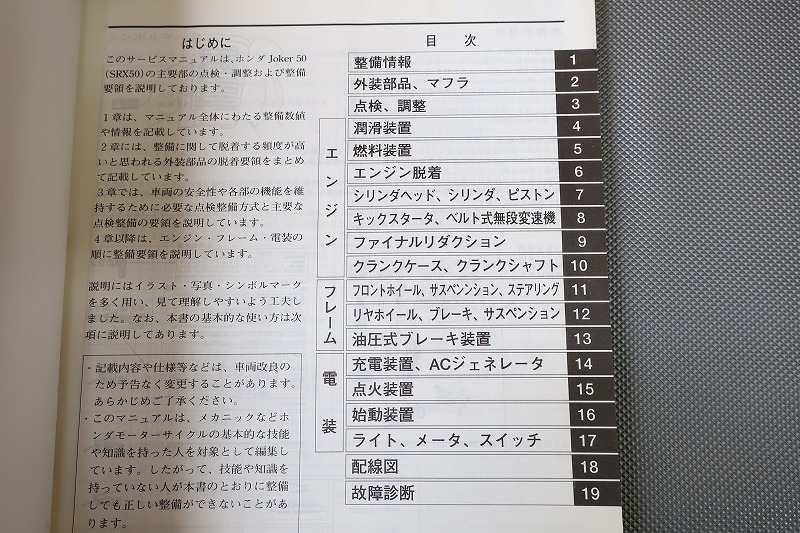 はじめに
このサービスマニュアルは、ホンダ Joker 50
(SRX50)の主要部の点検・調整および整備
要領を説明しております。
1章は、マニュアル全体にわたる整備数値
や情報を記載しています。
2章には、整備に関して脱着する頻度が高
いと思われる外装部品の脱着要領をまとめ
て記載しています。
3章では、車両の安全性や各部の機能を維
持するために必要な点検整備方式と主要な
点検整備の要領を説明しています。
4章以降は、エンジン・フレーム・電装の
順に整備要領を説明しています。
説明にはイラスト・写真・シンボルマーク
を多く用い、見て理解しやすいよう工夫し
ました。なお、本書の基本的な使い方は次
項に説明してあります。
・記載内容や仕様等などは、車両改良の
ため予告なく変更することがあります。
あらかじめご了承ください。
・このマニュアルは、メカニックなどホ
ンダモーターサイクルの基本的な技能
や知識を持った人を対象として編集し
ています。したがって、技能や知識を
持っていない人が本書のとおりに整備
しても正しい整備ができないことがあ
ります。
目 次
整備情報 1
外装部品、マフラ 2
点検、調整 3
エンジン
潤滑装置 4
燃料装置 5
エンジン脱着 6
シリンダヘッド、シリンダ、ピストン 7
キックスタータ、ベルト式無段変速機 8
ファイナルリダクション 9
クランクケース、クランクシャフト 10
フレーム
フロントホイール、サスペンンション、ステアリング 11
リヤホイール、ブレーキ、サスペンション 12
油圧式ブレーキ装置 13
電装
充電装置、ACジェネレータ 14
点火装置 15
始動装置 16
ライト、メータ、スイッチ 17
配線図 18
故障診断 19